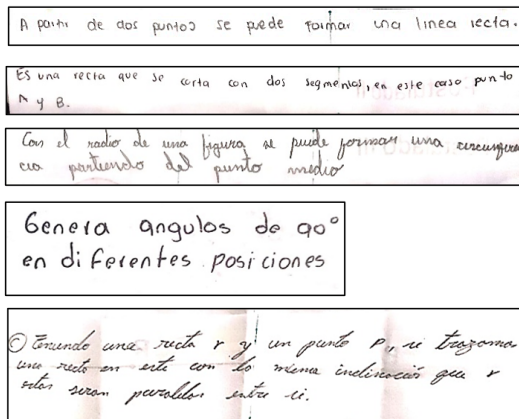 A partir de dos puntos se puede formar una linea recta.
Es una recta que se corta con dos segmentos, en este caso punto
A y B.
Con el radio de una figura se puide formar una circunferen
cia partiendo del punto medio
Genera angulos de 90°
en diferentes posiciones
© Teniendo una recta r y un punto P, si trazamos
una recta en este con la misma inclinación que r
estas seran paralelas entre si.